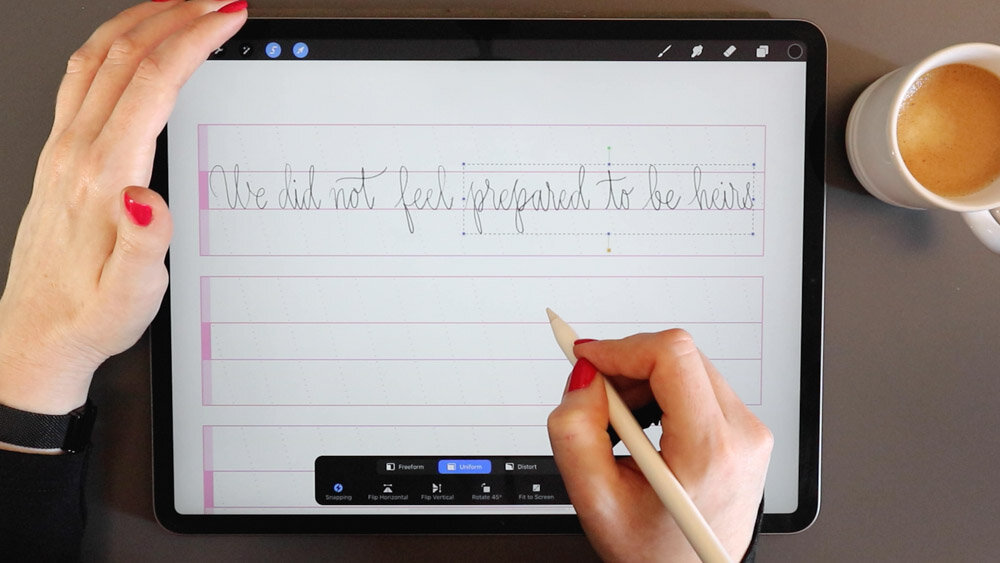 We did not feel prepared to be heirs
Freeform Uniform Distort
Snapping Flip Horizontal Flip Vertical Rotate 45° Fit to Screen